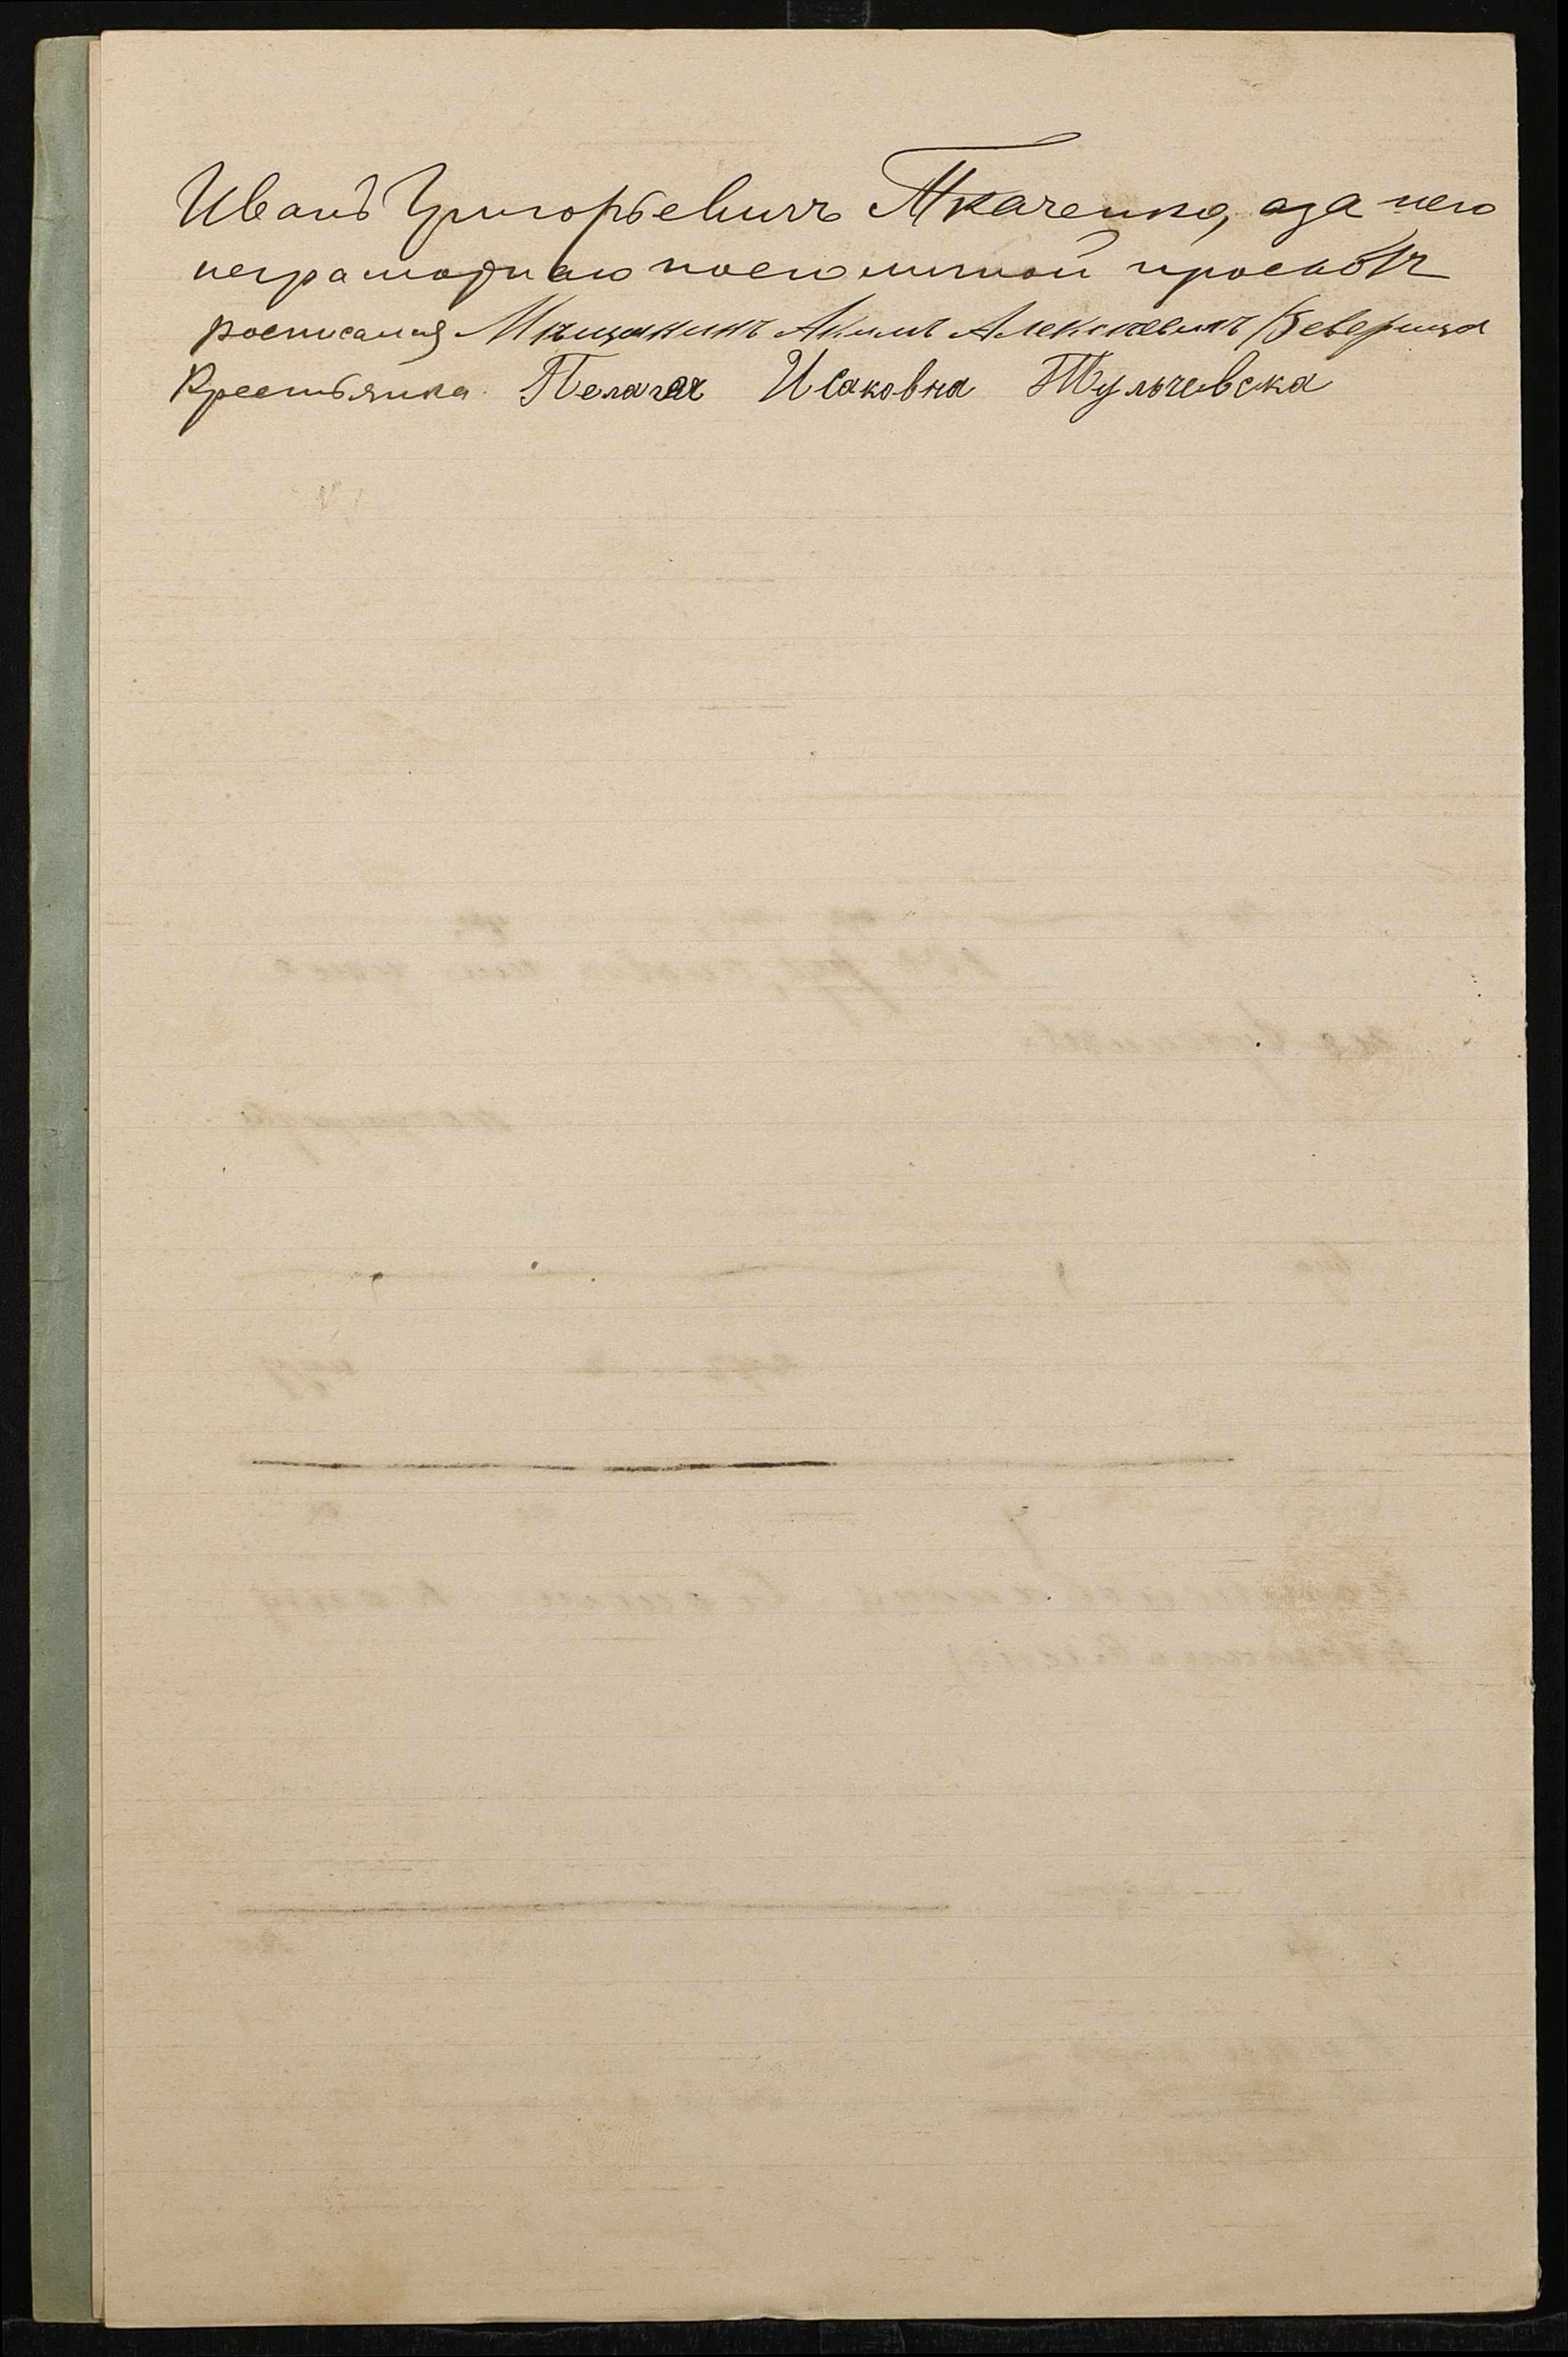 Иванъ Григорьевичъ Ткаченко, аза него
неграмотнаго поего личной проскбѣ
росписался Мѣщанинъ Акимъ Алексѣевичъ
Крестьянка Пелагея Исаковна Тульчевска